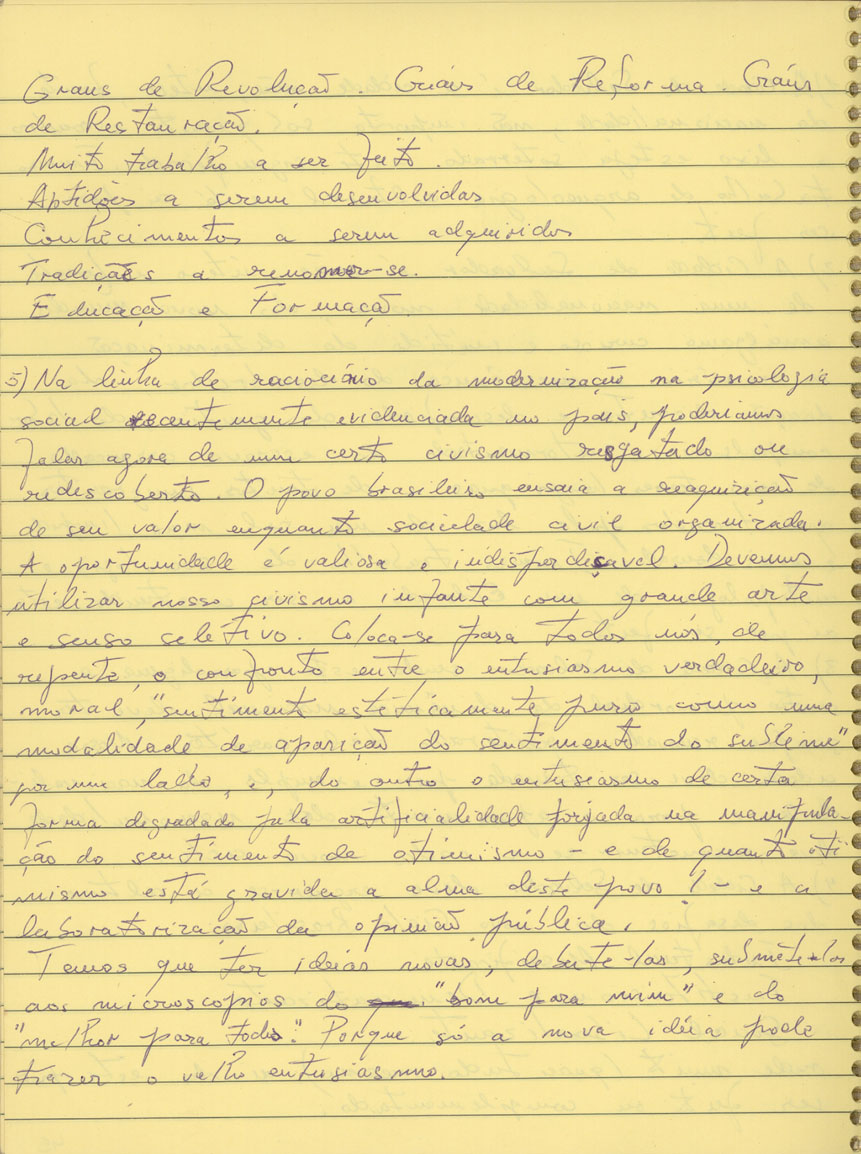 Graus de Revolução. Graus de Reforma. Graus
de Restauração.
Muito trabalho a ser feito.
Aptidões a serem desenvolvidas
Conhecimentos a serem adquiridos
Tradições a renomar-se.
Educação e Formação.
5) Na linha de raciocínio da modernização na psicologia
social recentemente evidenciada no país, poderíamos
falar agora de um certo civismo resgatado ou
redescoberto. O povo brasileiro ensaia a reaquisição
de seu valor enquanto sociedade civil organizada.
A oportunidade é valiosa e indisperdiçavel. Devemos
utilizar nosso civismo infante com grande arte
e senso seletivo. Coloca-se para todos nós, de
repente, o confronto entre o entusiasmo verdadeiro,
moral, "sentimento estéticamente puro como uma
modalidade de aparição do sentimento do sublime"
por um lado, e, do outro o entusiasmo de certa
forma degradado pela artificialidade forjada na manipula-
ção do sentimento de otimismo - e de quanto oti
mismo está gravida a alma deste povo! - e a
laboratorização da opinião pública.
Temos que ter idéias novas, debate-las, submete-las
aos microscopios do "bom para mim" e do
"melhor para todos". Porque só a nova idéia pode
trazer o velho entusiasmo.